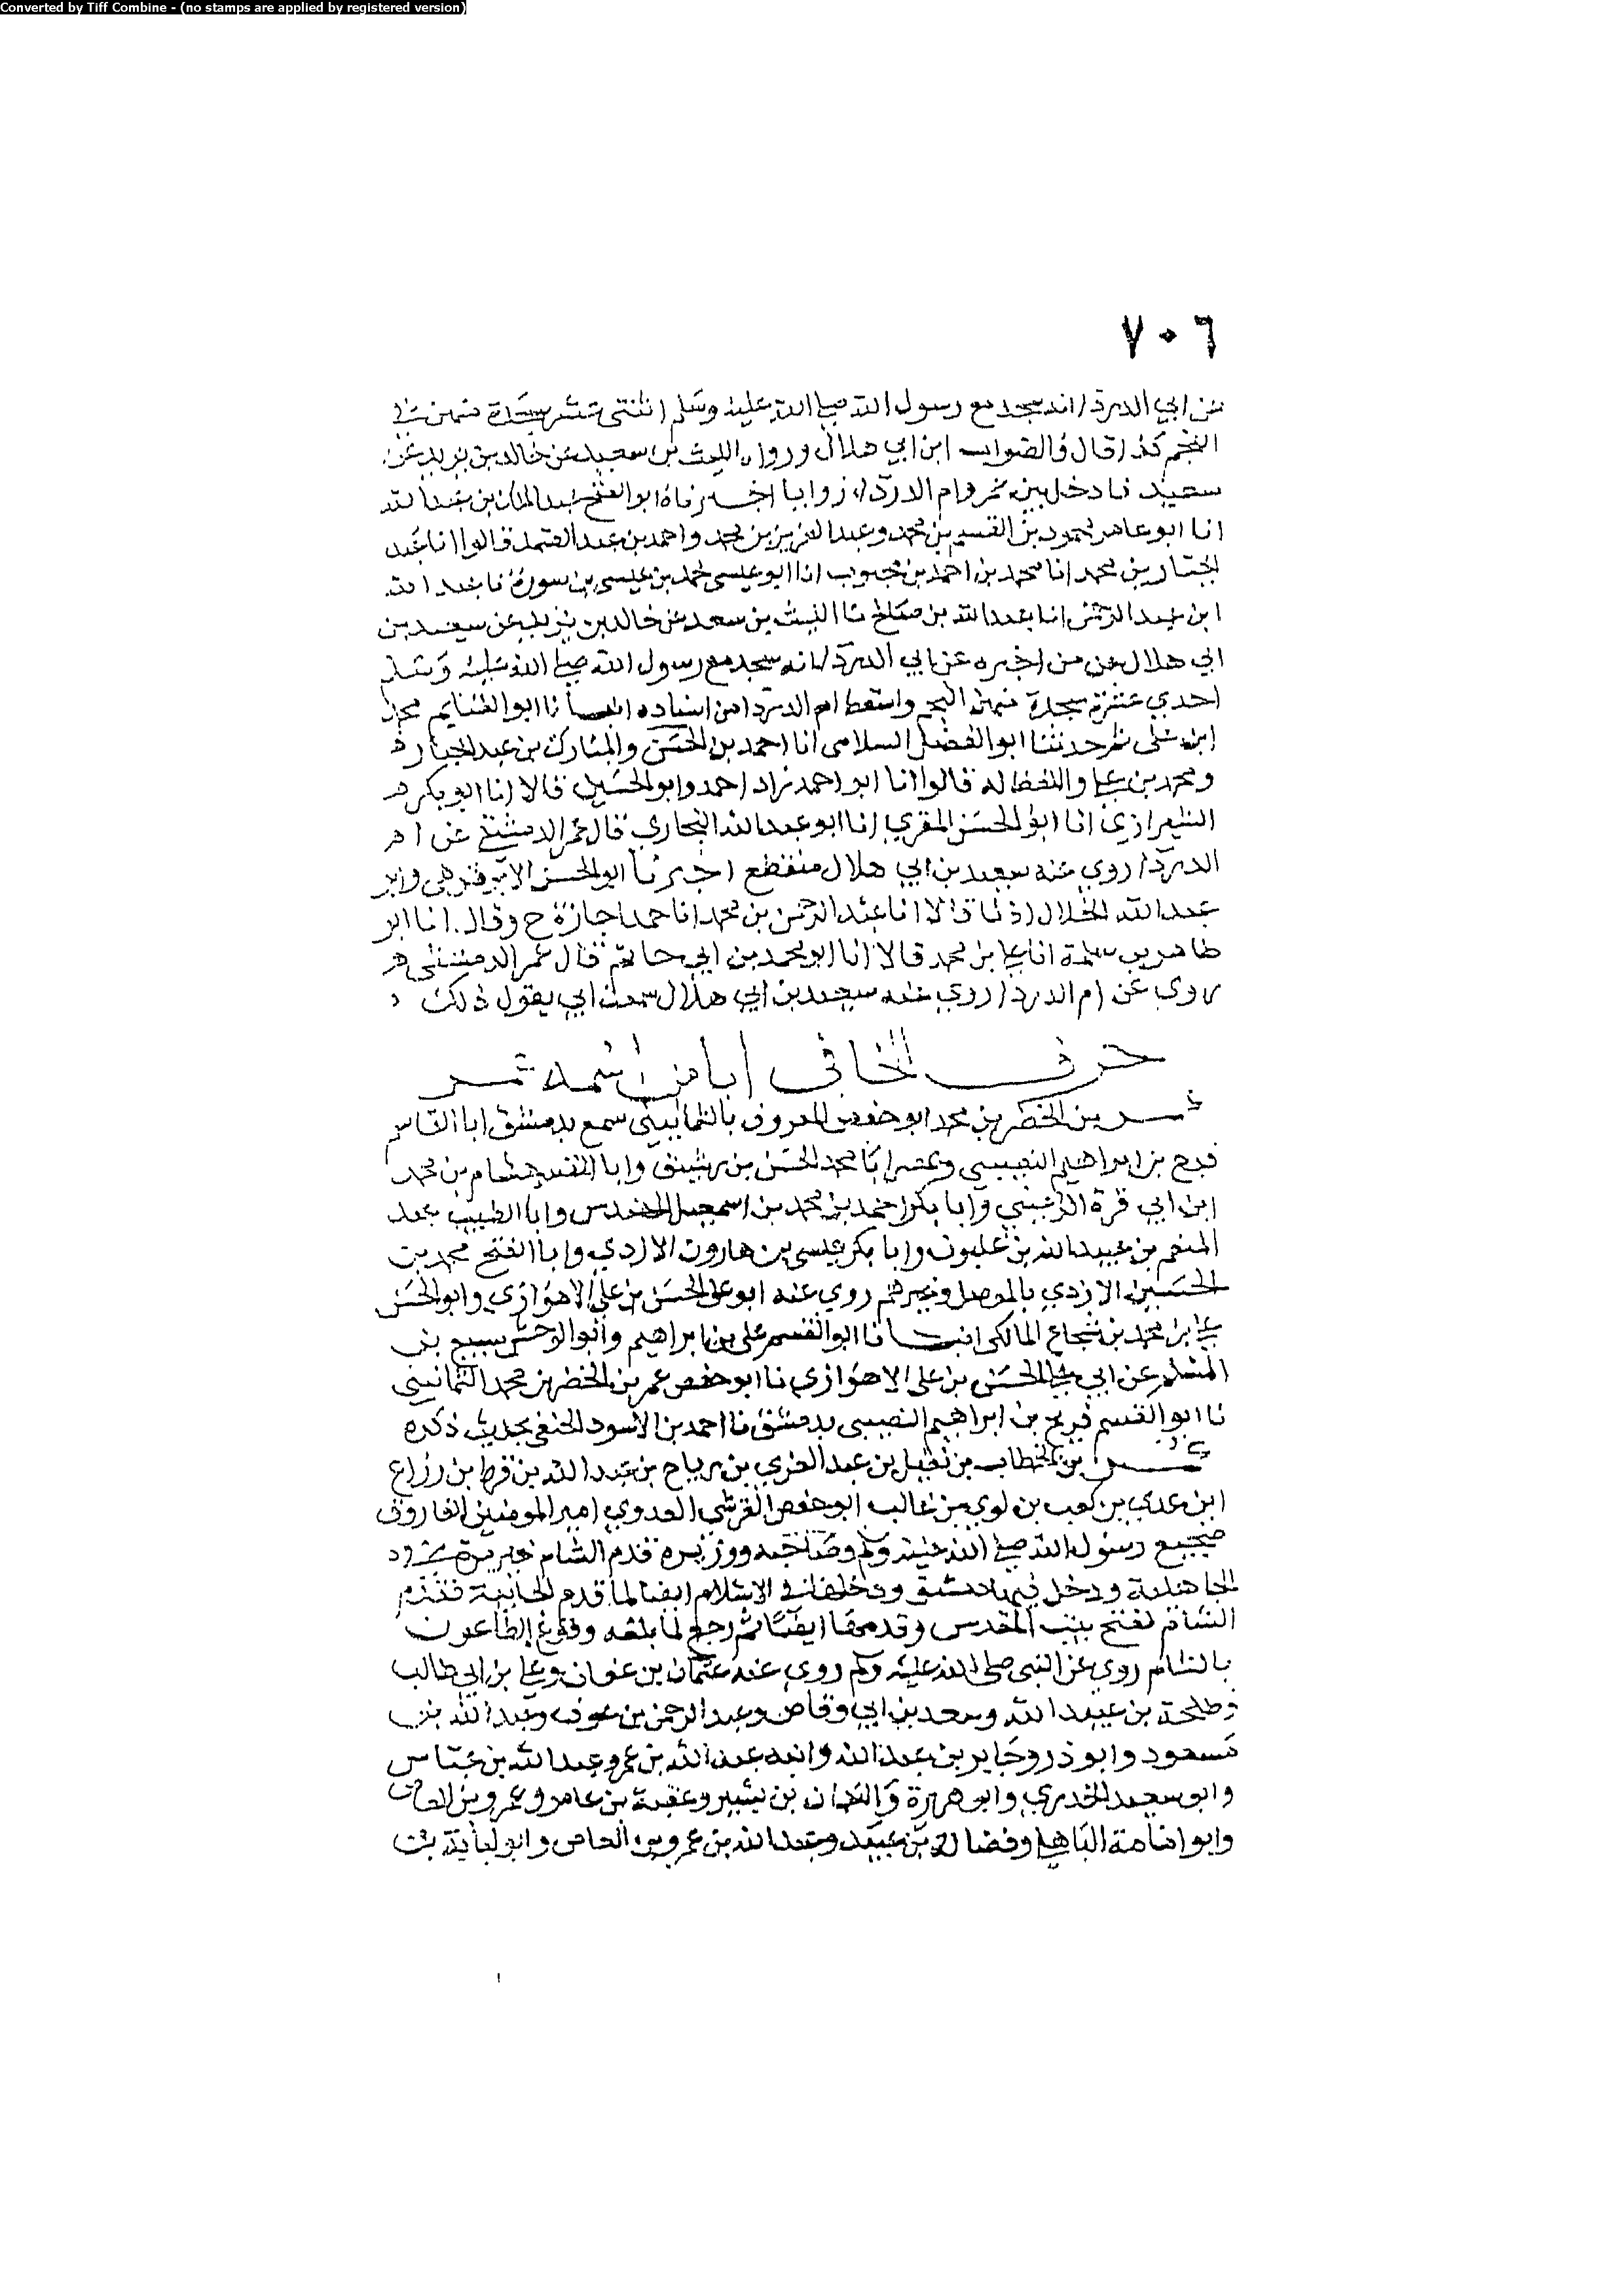 Converted by Tiff Combine - (no stamps are applied by registered version)
٧٠٦
عن ابي الدردا انه سجد مع رسول الله صلى الله عليه وسلم اثنتي عشر سجدة منهن في
النجم كذا قال والصواب ابن ابي هلال ورواه الليث بن سعيد عن خالد بن يزيد عن
سعيد فادخل بين عمر وام الدردا زوايا اخبرناه ابو الفتح عبد الملك بن عبد الله
انا ابو عامر محمود بن القسم بن محمد وعبد العزيز بن محمد واحمد بن عبد الصمد قالوا انا عبد
الجبار بن محمد انا محمد بن احمد بن محبوب انا ابو عيسى محمد بن عيسى بن سورة نا عبد الله
ابن عبد الرحمن انا عبد الله بن صالح نا الليث بن سعد عن خالد بن يزيد عن سعيد بن
ابي هلال عن من اخبره عن ابي الدردا انه سجد مع رسول الله صلى الله عليه وسلم
احدي عشرة سجدة منهن النجم واسقط ام الدردا من اسناده انبأنا ابو الغنايم محمد
ابن علي ثم حدثنا ابو الفضل السلامي انا احمد بن الحسن والمبارك بن عبد الجبار
ومحمد بن علي واللفظ له قالوا انا ابو احمد زاد احمد وابو الحسين قالا انا ابو بكر
الشيرازي انا ابو الحسن المقري انا ابو عبد الله البخاري قال عمر الدمشقي عن ام
الدردا روي عنه سعيد بن ابي هلال منقطع اخبرنا ابو الحسن الابرقوهي وابو
عبد الله الخلال اذنا قالا انا عبد الرحمن بن محمد انا حمد اجازة ح وقال انا ابو
طاهر بن سلمة انا علي بن محمد قالا انا ابو محمد بن ابي حاتم قال عمر الدمشقي
روي عن ام الدردا روي عنه سعيد بن ابي هلال سمعت ابي يقول ذلك
حرف الخا في ابا من اسمه عمر
عمر بن الخضر بن محمد ابو حفص المعروف بالثمانيني سمع بدمشق ابا القاسم
فرج بن ابراهيم النصيبي وبمصر ابا محمد الحسن بن رشيق وابا القسم هشام بن محمد
ابن ابي قرة الرعيني وابا بكر احمد بن محمد بن اسمعيل المهندس وابا الطيب عبد
المنعم بن عبيد الله بن غلبون وابا بكر عيسى بن هارون الازدي وابا الفتح محمد بن
الحسين الازدي بالموصل وغيرهم روي عنه ابو علي الحسن بن علي الاهوازي وابو الحسن
علي بن محمد بن شجاع المالكي انبانا ابو القسم علي بن ابراهيم وابو الوحش سبيع بن
المسلم عن ابي علي الحسن بن علي الاهوازي نا ابو حفص عمر بن الخضر بن محمد الثمانيني
نا ابو القسم فرج بن ابراهيم النصيبي بدمشق نا احمد بن الاسود الحنفي بحديث ذكره
عمر بن الخطاب بن نفيل بن عبد العزي بن رياح بن عبد الله بن قرط بن رزاح
ابن عدي بن كعب بن لوي بن غالب ابو حفص القرشي العدوي امير المومنين الفاروق
ضجيع رسول الله صلى الله عليه وسلم وصاحبه ووزيره قدم الشام غير مرة في
الجاهلية ودخل فيها دمشق ودخلها في الاسلام ايضا لما قدم الجابية فقدم
الشام لفتح بيت المقدس وقدمها ايضا ثم رجع لما بلغه وقوع الطاعون
بالشام روي عن النبي صلى الله عليه وسلم روي عنه عثمان بن عفان وعلي بن ابي طالب
وطلحة بن عبيد الله وسعد بن ابي وقاص وعبد الرحمن بن عوف وعبد الله بن
مسعود وابو ذر وجابر بن عبد الله وابنه عبد الله بن عمر وعبد الله بن عباس
وابو سعيد الخدري وابو هريرة والنعمان بن بشير وعقبة بن عامر وعمرو بن العاص
وابو امامة الباهلي وفضالة بن عبيد وعبد الله بن عمرو بن العاص وابو لبابة بن